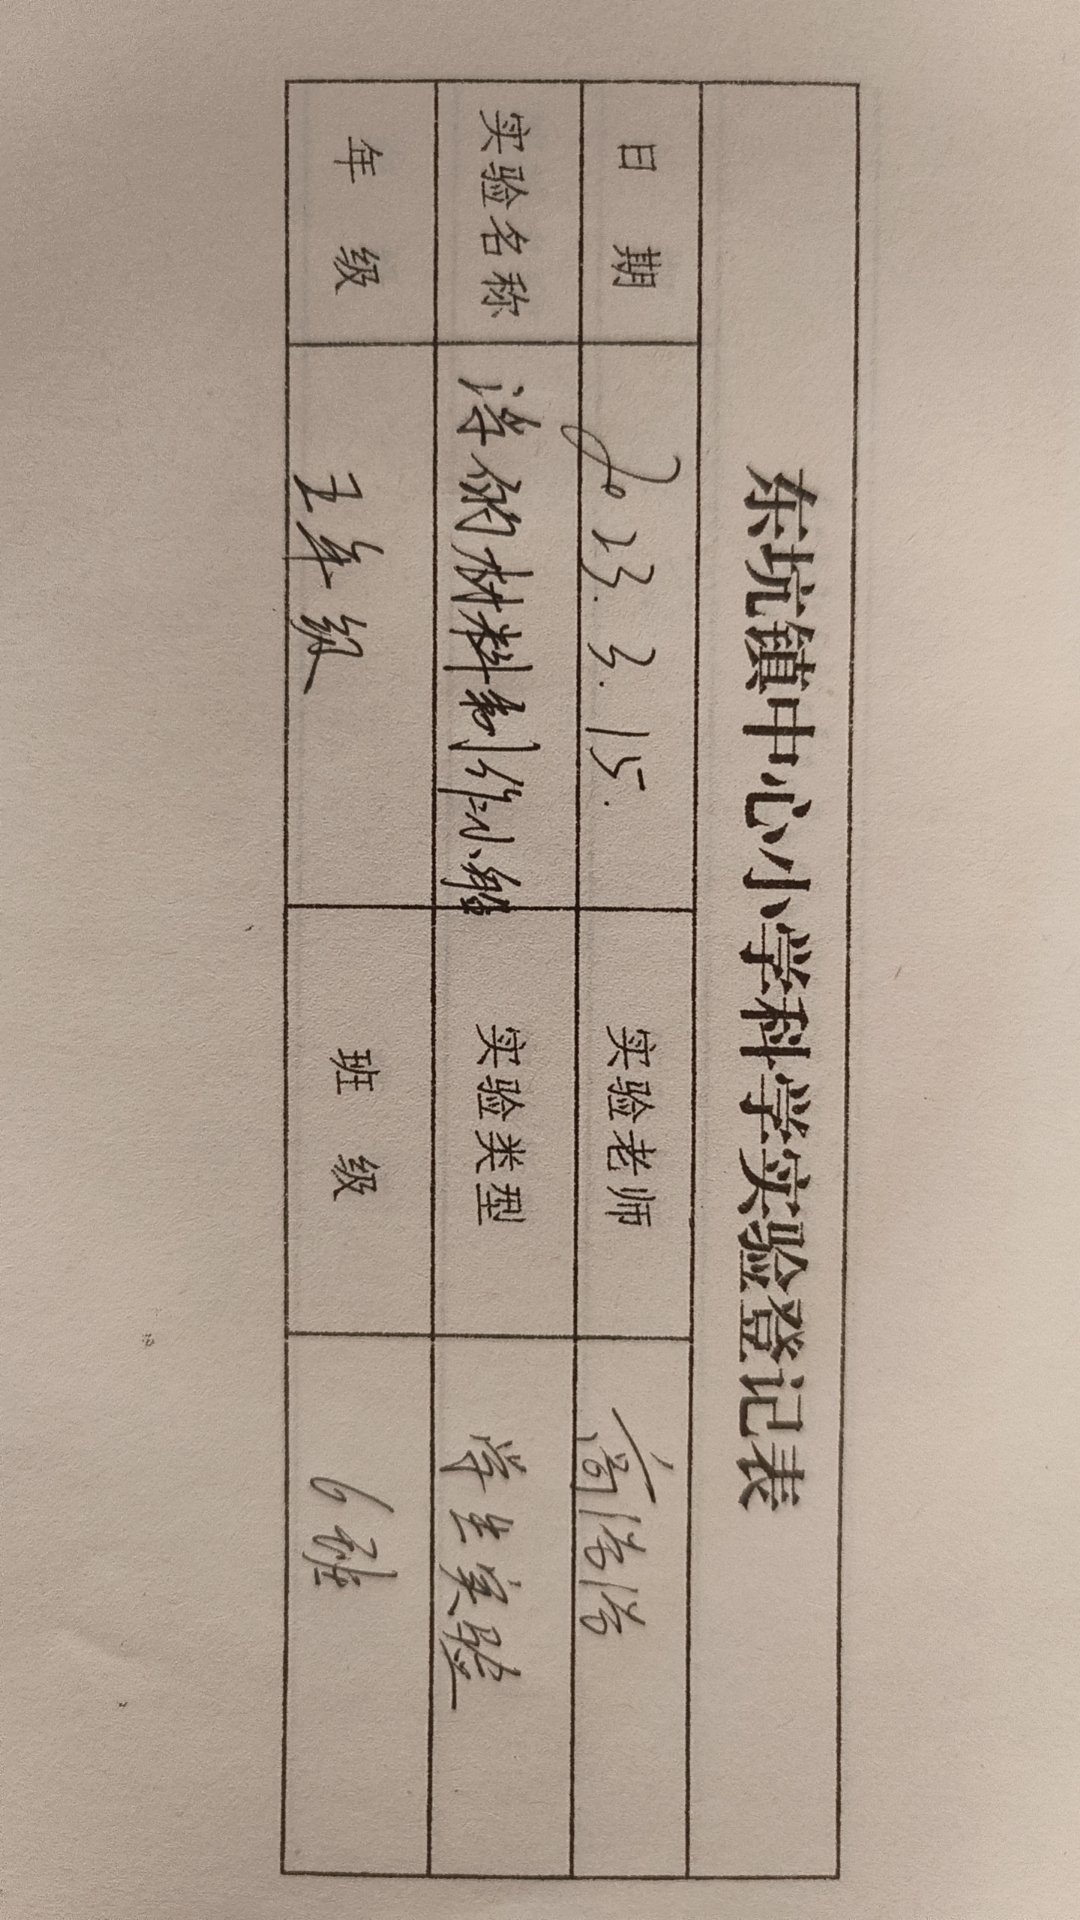 东坑镇中心小学科学实验登记表
日 期 2023.3.15. 实验老师
实验名称 浮的材料制作小船 实验类型 学生实验
年 级 五年级 班 级 6班